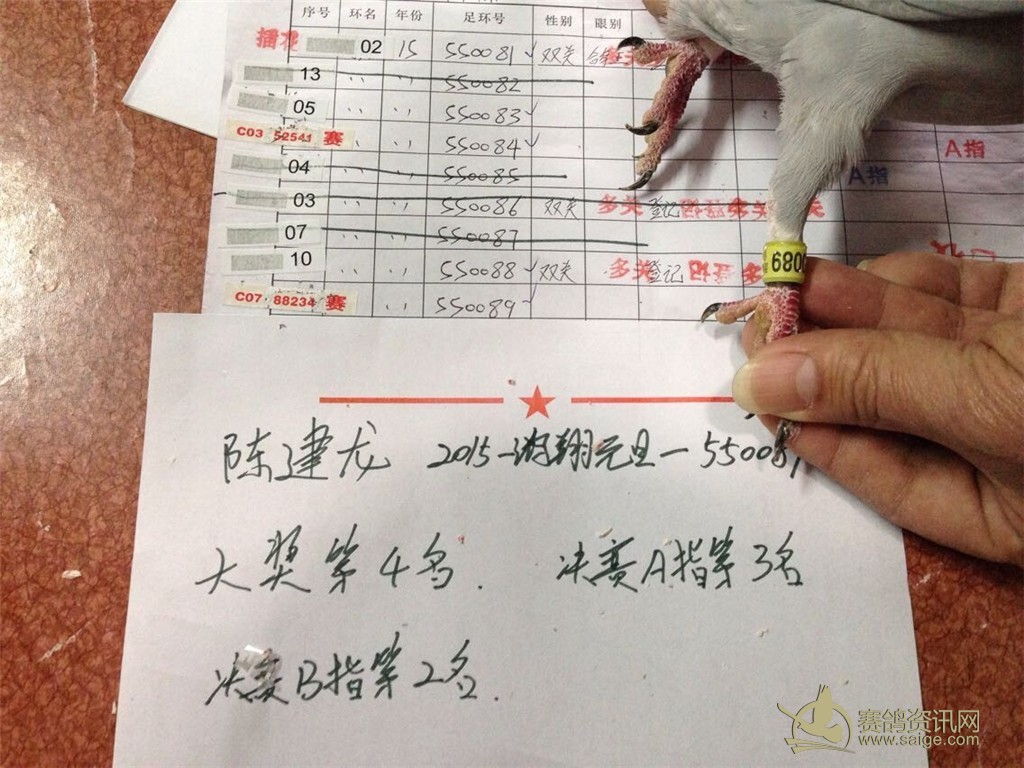 序号 环名 年份 足环号 性别 眼别
02 15 550081 双关
13 〃 〃 550082
05 〃 〃 550083
C03 52541 赛 〃 〃 550084
04 〃 〃 550085
A指
A指
03 〃 〃 550086 双关 多关 登记
07 〃 〃 550087
10 〃 〃 550088 双关 多关 登记
C07 88234 赛 〃 〃 550089
6800
陈建龙 2015-翱翔元旦-550081
大奖第4名. 决赛A指第3名
决赛B指第2名.
赛鸽资讯网
www.saige.com